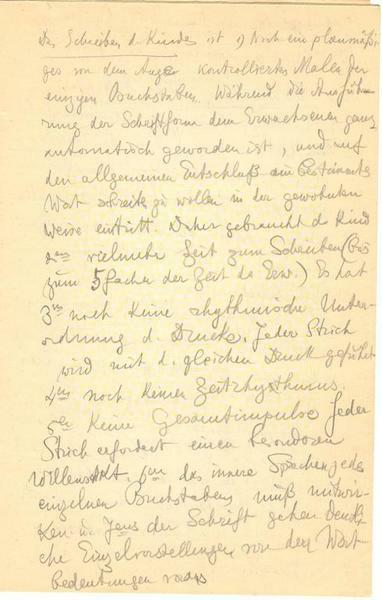 Das Schreiben d. Kindes ist 1) Noch ein planmäßi-
ges von dem Auge kontrolliertes Malen der
einzigen Buchstaben. Während die Ausfüh-
rung der Schriftform dem Erwachsenen ganz
automatisch geworden ist, und auf
den allgemeinen Entschluß ein bestimmtes
Wort schreiben zu wollen in der gewohnten
Weise eintritt. Daher gebraucht d. Kind
2tens vielmehr Zeit zum Schreiben (bis
zum 5fachen der Zeit des Erw.) Es hat
3tens noch keine rhythmische Unter-
ordnung d. Drucks. Jeder Strich
wird mit d. gleichen Druck geführt
4tens noch keinen Zeitrhythmus.
5tens Keine Gesamtimpulse Jeder
Strich erfordert einen besonderen
Willensakt. 6tens das innere Sprechen jedes
einzelnen Buchstabens muß mitwir-
ken u. der Schrift gehen deutli-
che Einzelvorstellungen von den Wort
bedeutungen